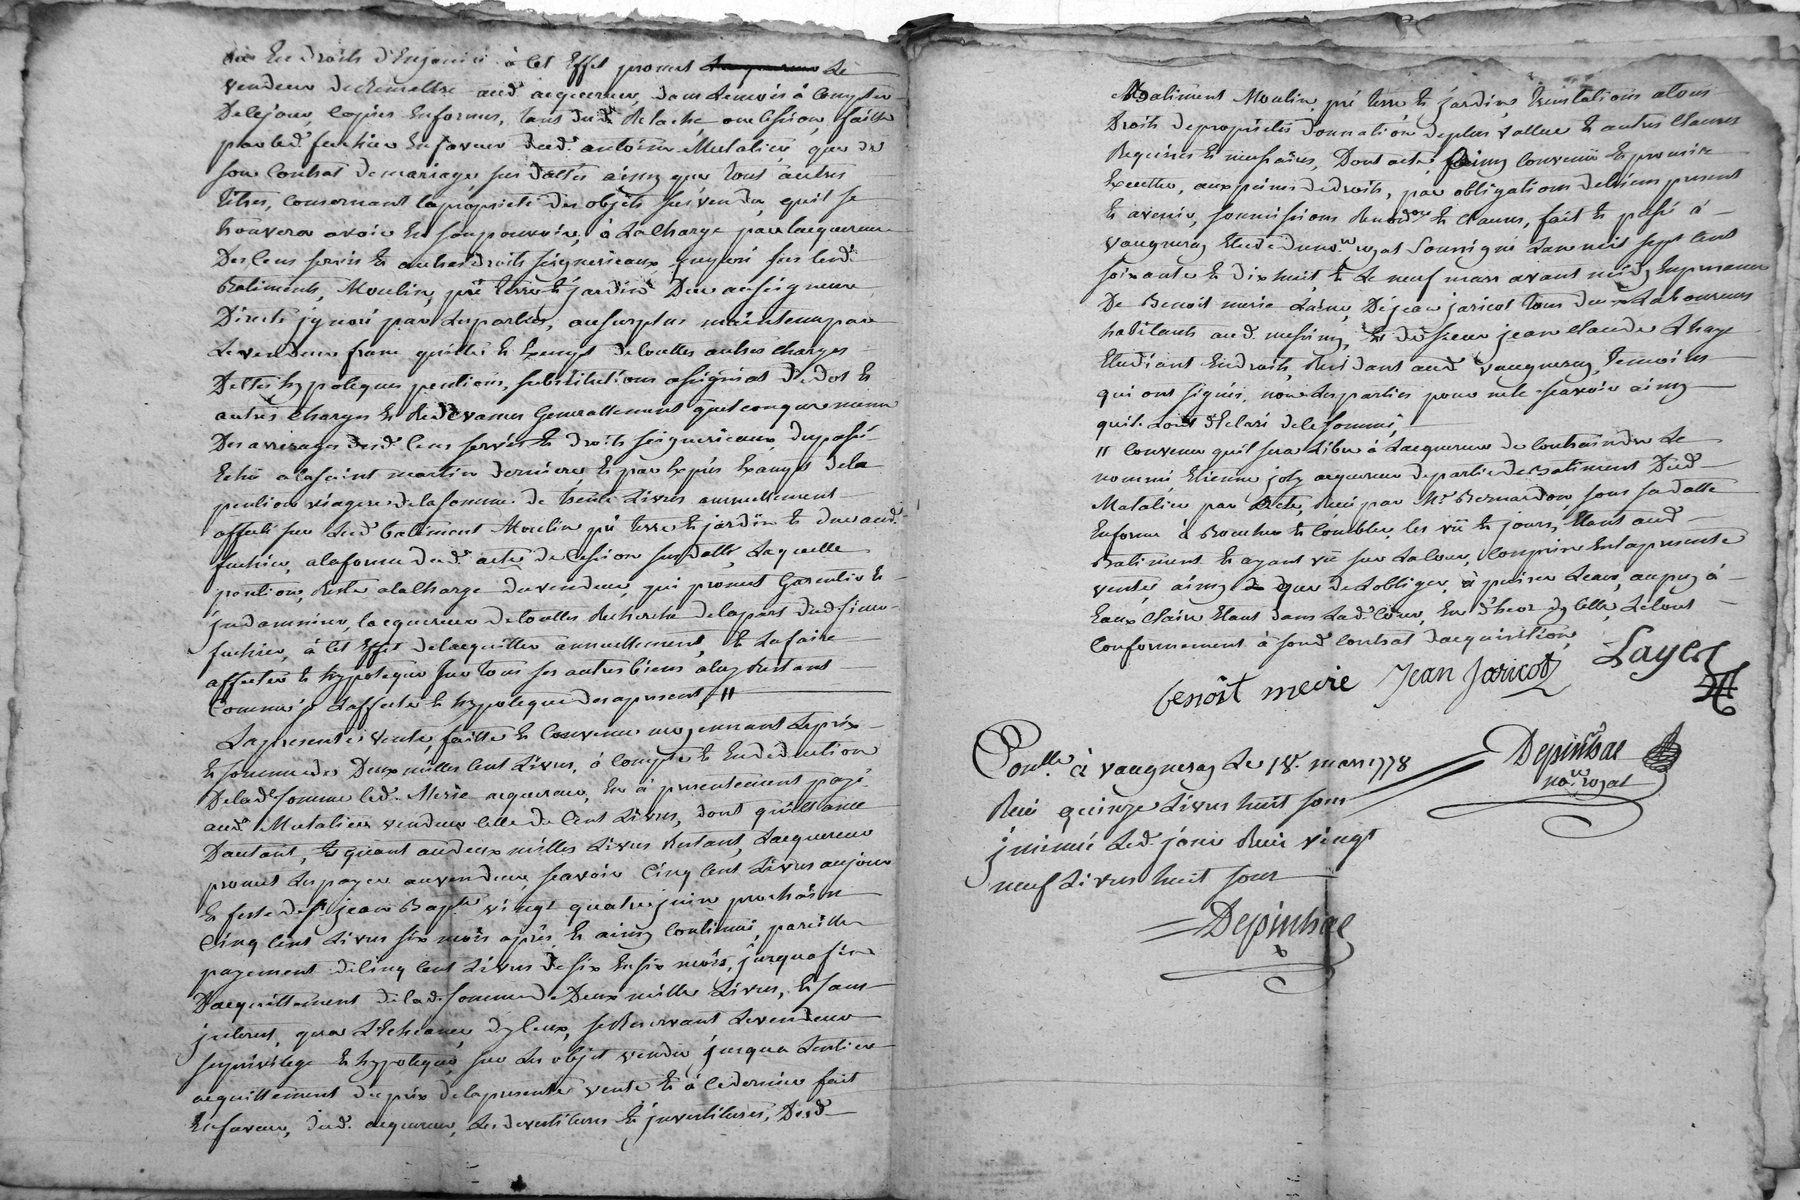 en droits d'en jouir à cet Effet promet Le
vendeur de Remettre aud. acquereur, dans Le mois à compter
De ce jour, copies Enformes, tant dud. Relaché ou cession faitte
par led. fuchier En faveur dud. antoine Matalier, que de
son Contrat de mariage sus datté ainsy que tout autres
titres, consernant la propriété des objets sus vendu, qu'il se
trouvera avoir En son pouvoir, à La charge par lacquereur
Des cens servis Et autres droits seigneuriaux sur lesd.
Batiments, Moulin, pré terre et jardin Du au seigneur
Directe ignoré par Les parties, au surplus maintenu par
Le vendeur franc quitte Et Exempt de touttes autres charges
Dettes hypoteques pentions, substitutions de dot Et
autres charges Et Redevances Generallement quelconque meme
Des arrerages desd. cens servis Et droits seigneuriaux du passé
Echu a la saint martin derniere, Et par Expres Exampt de la
pention viagere de la somme de trente Livres annuellement
affecté sur Lesd. batiment Moulin pré terre Et jardin Et due aud.
fuchier, a la forme dud. acte de Cession susdatté, Laquelle
pention, Reste a la charge du vendeur, qui promet Garentir Et
indamniser, lacquereur de touttes Recherche de la part dud. sieur
fuchier, à cet Effet de lacquitter annuellement, Et La faire
affecter Et hypotequer sur tous ses autres biens a luy Restant
Comme il Laffecte Et hypoteque des apresent, //
La presente vente, faitte Et Convenue moyennant Le prix
Et somme de Deux milles Cent Livres, à compte Et En deduction
De lad. somme led. Merie acquereur, En a presentement payé
aud. Matalier vendeur celle de Cent Livres, dont quittance
Dautant, Et quant aux deux milles Livres Restant, Lacquereur
promet Les payer au vendeur, scavoir Cinq Cent Livres au jour
Et feste de St. jean Bapte. vingt quatre juin prochain
Cinq Cent Livres six mois après Et ainsy Continué, pareille
payement de Cinq Cent Livres de six En six mois, jusqu'a fin
Dacquittement de lad. somme de Deux mille Livres, Et sans
interest, qua Lecheance dyceux, se Reservant Le vendeur
se privilege Et hypoteque, sur Les objet vendu jusqua Lentier
acquittement du prix de la presente vente Et à Ce dernier fait
En faveur, dud. acquereur, Les devestitures Et investitures, Desd.
Batiment Moulin pré terre Et jardin,
Droits de propriété donnation de plus vallue Et autres Clauses
Requises Et nessaires, Dont acte, ainsy Convenû Et promis
Executter, aux peines de droits, par obligations de biens present
Et avenir, soumissions Renon.ons Et Clauses, fait Et passé à
vaugneray Etude du nore. royal soussigné Lan mil sept Cent
soixante Et dix huit, Et Le neuf mars avant midy En presence
De Benoit merie Lainé, De jean jaricot tous deux Laboureurs
habitants aud. messimy, Et de sieur jean claude Lhaye
Etudiant En droits, Residant aud. vaugneray, temoins
qui ont signés, non Les parties pour ne le scavoir ainsy
quil. sont declaré de ce sommé,
// Convenu quil sera Libre à Lacquereur de Contraindre Le
nommé Etienne joly acquereur de partie de Batiment Dud.
Matalier par Acte, Reçu par Me. Bernardon, sous sa datte
Enforme à Boucher Et Combler, les vü Et jours, Etant aud.
Batiment Et ayant vü sur La Cour, Comprise En la presente
vente, ainsy que de Lobliger, à puiser Leau, au puy à
Eaux Claire Etant dans Lad. Cour, En dycelle, Le tout
Conformement à sond. Contrat dacquisition,
benoit merie Jean Jaricot Layer
Conllé. à vaugneray Le 18. mars 1778
Reçu quinze Livres huit sous
insinué Led. jour Reçu vingt
neuf Livres huit sous
Depinhac
nore. royal
Depinhac